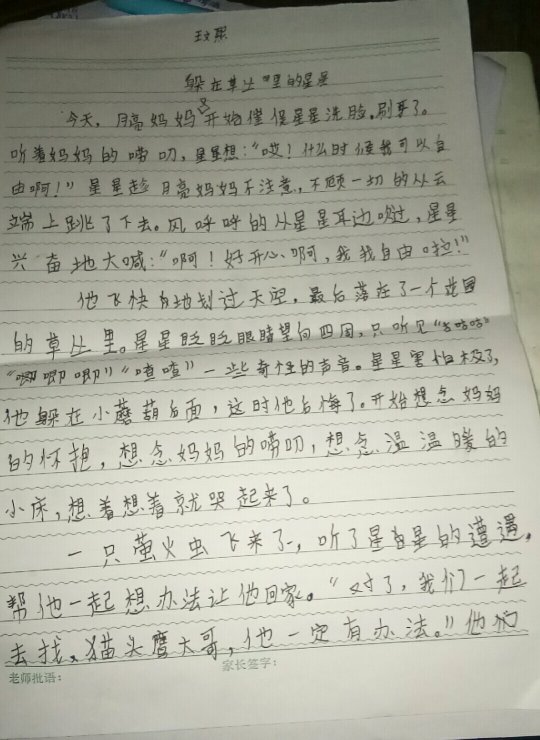 躲在草丛里的星星
今天，月亮妈妈又开始催促星星洗脸，刷牙了。
听着妈妈的唠叨，星星想：“哎！什么时候我可以自
由啊！”星星趁月亮妈妈不注意，不顾一切的从云
端上跳了下去。风呼呼的从星星耳边吹过，星星
兴奋地大喊：“啊！好开心啊，我我自由啦！”
他飞快地划过天空，最后落在了一个花园
的草丛里。星星眨眨眼睛望向四周，只听见“咕咕咕”
“唧唧唧”“喳喳”一些奇怪的声音。星星害怕极了，
他躲在小蘑葫后面，这时他后悔了。开始想念妈妈
的怀抱，想念妈妈的唠叨，想念温温暖的
小床，想着想着就哭起来了。
一只萤火虫飞来了，听了星星的遭遇，
帮他一起想办法让他回家。“对了，我们一起
去找猫头鹰大哥，他一定有办法。”他们
老师批语： 家长签字：